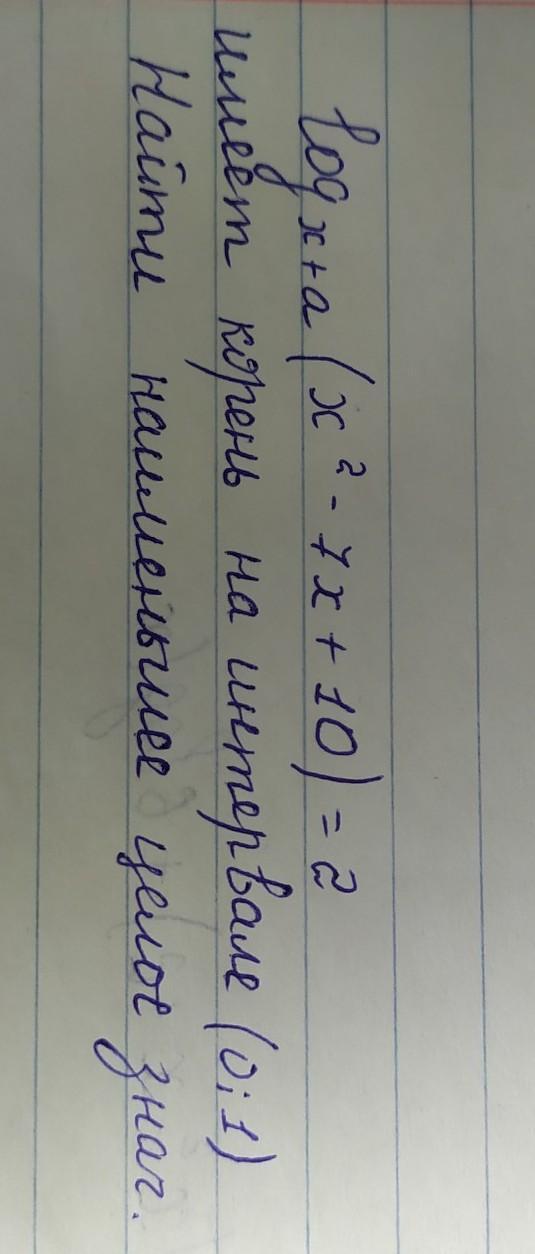 log x+a (x² - 7x + 10) = 2
имеет корень на интервале (0; 1)
Найти наименьшее целое знач.